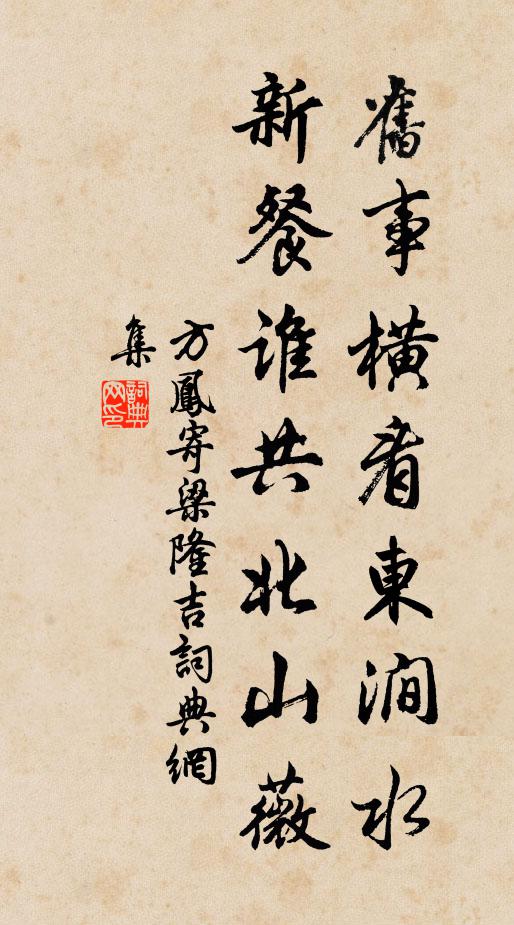 舊事橫看東澗水
新餐誰共北山薇
方鳳寄梁隆吉詞典網
集
詞典
网印